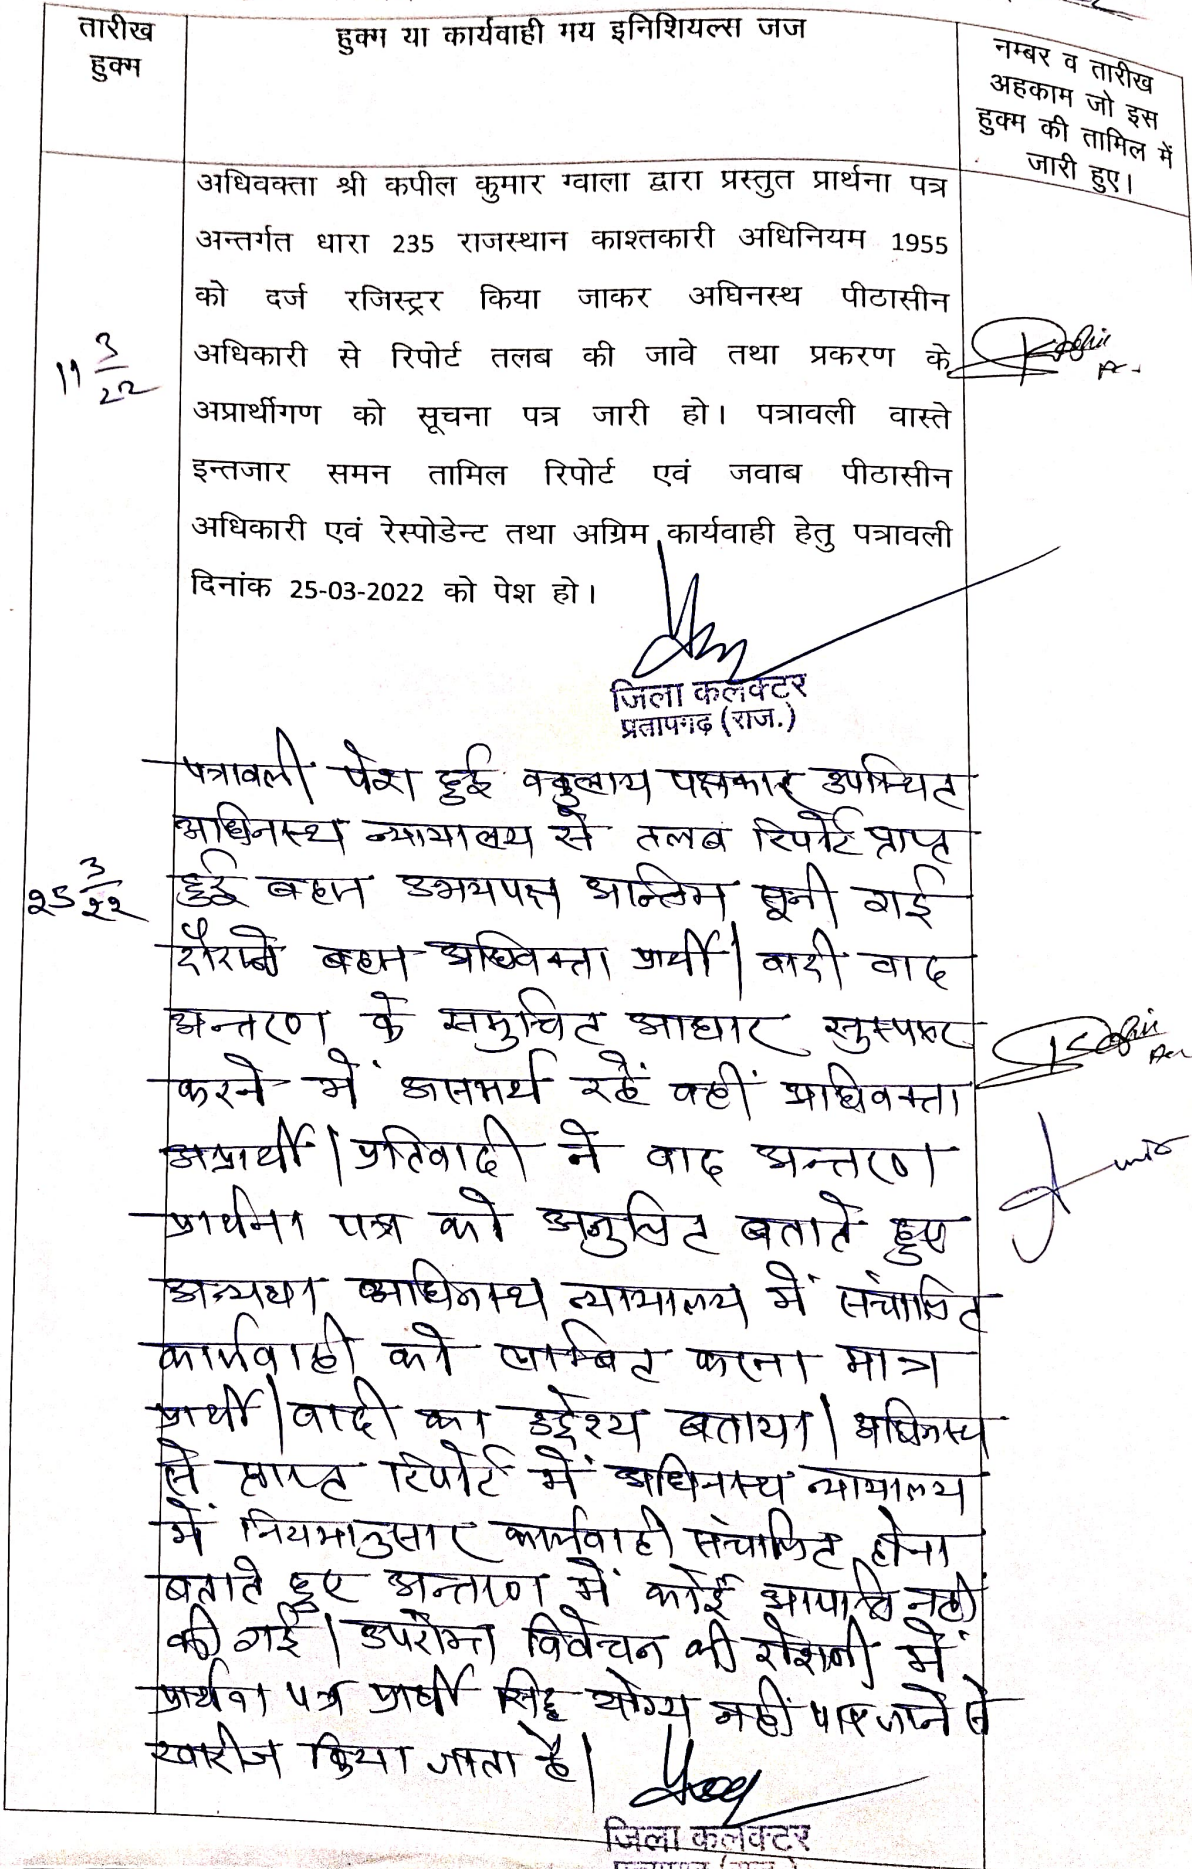 तारीख
हुक्म
हुक्म या कार्यवाही मय इनिशियल्स जज
नम्बर व तारीख
अहकाम जो इस
हुक्म की तामिल में
जारी हुए।
अधिवक्ता श्री कपील कुमार ग्वाला द्वारा प्रस्तुत प्रार्थना पत्र
अन्तर्गत धारा 235 राजस्थान काश्तकारी अधिनियम 1955
को दर्ज रजिस्ट्रर किया जाकर अघिनस्थ पीठासीन
11 3/22
अधिकारी से रिपोर्ट तलब की जावे तथा प्रकरण के
अप्रार्थीगण को सूचना पत्र जारी हो। पत्रावली वास्ते
इन्तजार समन तामिल रिपोर्ट एवं जवाब पीठासीन
अधिकारी एवं रेस्पोडेन्ट तथा अग्रिम कार्यवाही हेतु पत्रावली
दिनांक 25-03-2022 को पेश हो।
जिला कलक्टर
प्रतापगढ़ (राज.)
पत्रावली पेश हुई वकुलाय पक्षकार उपस्थित
अधिनस्थ न्यायालय से तलब रिपोर्ट प्राप्त
25 3/22
हुई बहस उभयपक्ष अन्तिम सूनी गई
दौराने बहस अधिवक्ता प्रार्थी/वादी वाद
अन्तरण के समुचित आधार सुस्पष्ट
करने में असमर्थ रहें वहीं अधिवक्ता
अप्रार्थी/प्रतिवादी ने वाद अन्तरण
प्रार्थना पत्र को अनुचित बताते हुए
अन्यथा अधिनस्थ न्यायालय में संचालित
कार्यवाही को लम्बित करना मात्र
प्रार्थी/वादी का उद्देश्य बताया। अधिनस्थ
से प्राप्त रिपोर्ट में अधिनस्थ न्यायालय
में नियमानुसार कार्यवाही संचालित होना
बताते हुए अन्तरण में कोई आपत्ति नहीं
की गई। उपरोक्त विवेचन की रोशनी में
प्रार्थना पत्र प्रार्थी सिद्ध योग्य नहीं पाए जाने से
खारीज किया जाता है।
जिला कलक्टर